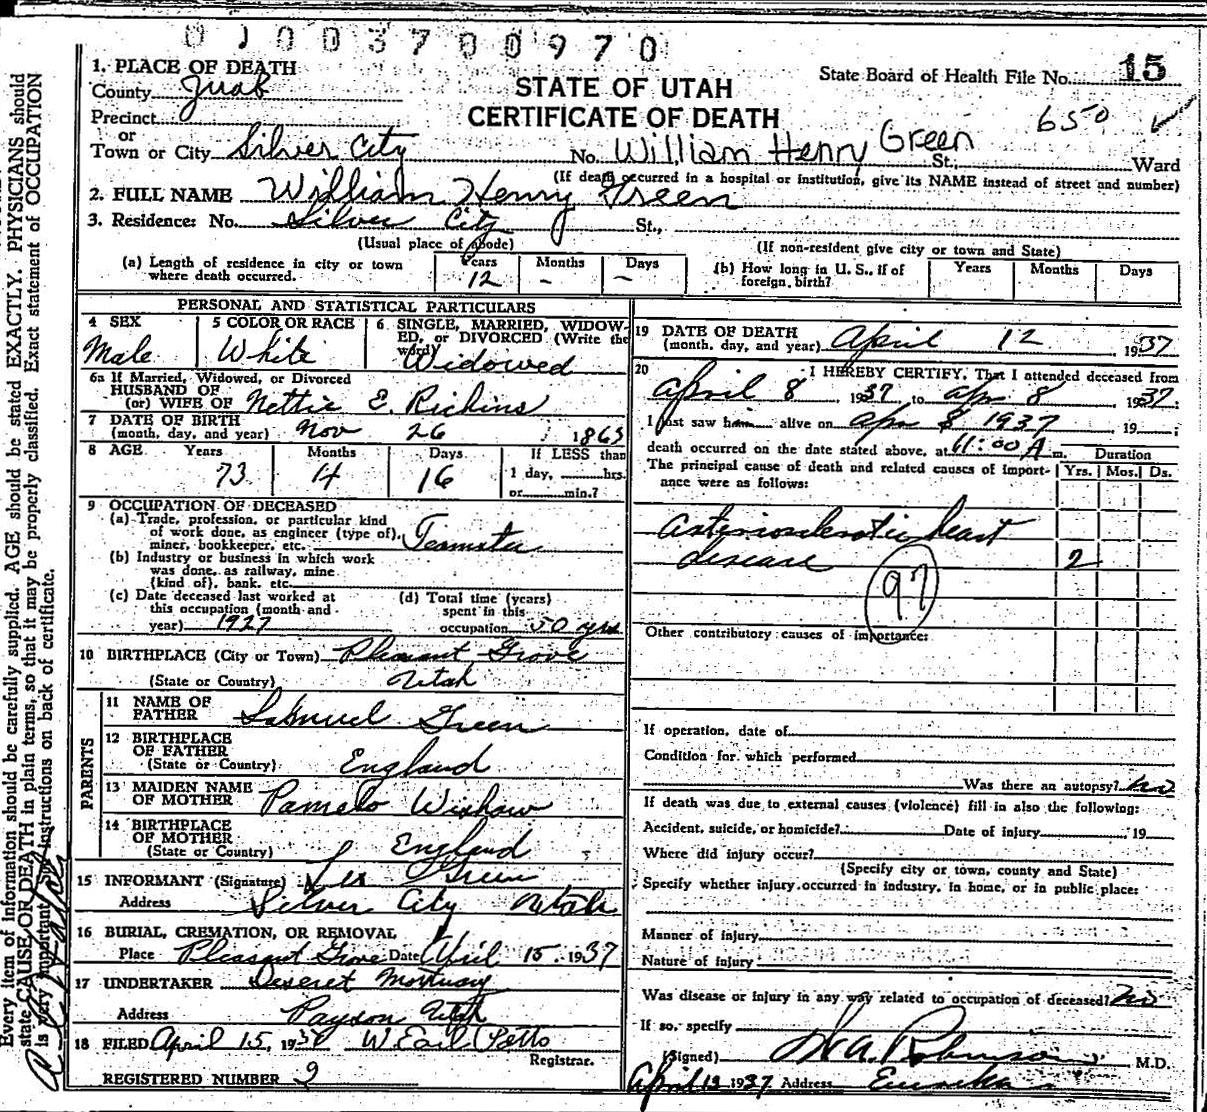 0100370097 0
1. PLACE OF DEATH
County Juab
STATE OF UTAH
CERTIFICATE OF DEATH
State Board of Health File No. 15
650
Precinct
or
Town or City Silver City No. William Henry Green St. Ward
(If death occurred in a hospital or institution, give its NAME instead of street and number)
2. FULL NAME William Henry Green
3. Residence: No. Silver City St.,
(Usual place of abode) (If non-resident give city or town and State)
(a) Length of residence in city or town where death occurred. Years 12 Months - Days -
(b) How long in U. S., if of foreign birth? Years Months Days
PERSONAL AND STATISTICAL PARTICULARS
4 SEX Male
5 COLOR OR RACE White
6 SINGLE, MARRIED, WIDOWED, or DIVORCED (Write the word) Widowed
6a If Married, Widowed, or Divorced
HUSBAND OF
(or) WIFE OF Nettie E. Richins
7 DATE OF BIRTH
(month, day, and year) Nov 26 1863
8 AGE Years 73 Months 4 Days 16 If LESS than
1 day, hrs.
or min.?
9 OCCUPATION OF DECEASED
(a) Trade, profession, or particular kind
of work done, as engineer (type of),
miner, bookkeeper, etc. Teamster
(b) Industry or business in which work
was done, as railway, mine
(kind of), bank, etc.
(c) Date deceased last worked at
this occupation (month and
year) 1927
(d) Total time (years)
spent in this
occupation 50 yrs
10 BIRTHPLACE (City or Town) Pleasant Grove
(State or Country) Utah
PARENTS
11 NAME OF
FATHER Samuel Green
12 BIRTHPLACE
OF FATHER
(State or Country) England
13 MAIDEN NAME
OF MOTHER Pamela
14 BIRTHPLACE
OF MOTHER
(State or Country) England
15 INFORMANT (Signature) Les Green
Address Silver City Utah
16 BURIAL, CREMATION, OR REMOVAL
Place Pleasant Grove Date April 15, 1937
17 UNDERTAKER Deseret Mortuary
Address Payson Utah
18 FILED April 15, 1937 W Earl Potts
Registrar.
REGISTERED NUMBER 2
19 DATE OF DEATH
(month, day, and year) April 12, 1937
20 I HEREBY CERTIFY, That I attended deceased from
April 8, 1937, to Apr 8 1937.
I last saw h alive on Apr 8 1937, 19 ;
death occurred on the date stated above, at 11:00 A m.
The principal cause of death and related causes of importance were as follows:
Duration
Yrs. Mos. Ds.
Arteriosclerotic heart
disease 2
97
Other contributory causes of importance:
If operation, date of
Condition for which performed
Was there an autopsy? no
If death was due to external causes (violence) fill in also the following:
Accident, suicide, or homicide? Date of injury 19
Where did injury occur?
(Specify city or town, county and State)
Specify whether injury occurred in industry, in home, or in public place:
Manner of injury
Nature of injury
Was disease or injury in any way related to occupation of deceased? no
If so, specify
(Signed) Robinson, M.D.
April 12 1937 Address Eureka
Every item of information should be carefully supplied. AGE should be stated EXACTLY. PHYSICIANS should
state CAUSE OR DEATH in plain terms, so that it may be properly classified. Exact statement of OCCUPATION
is very important. See instructions on back of certificate.